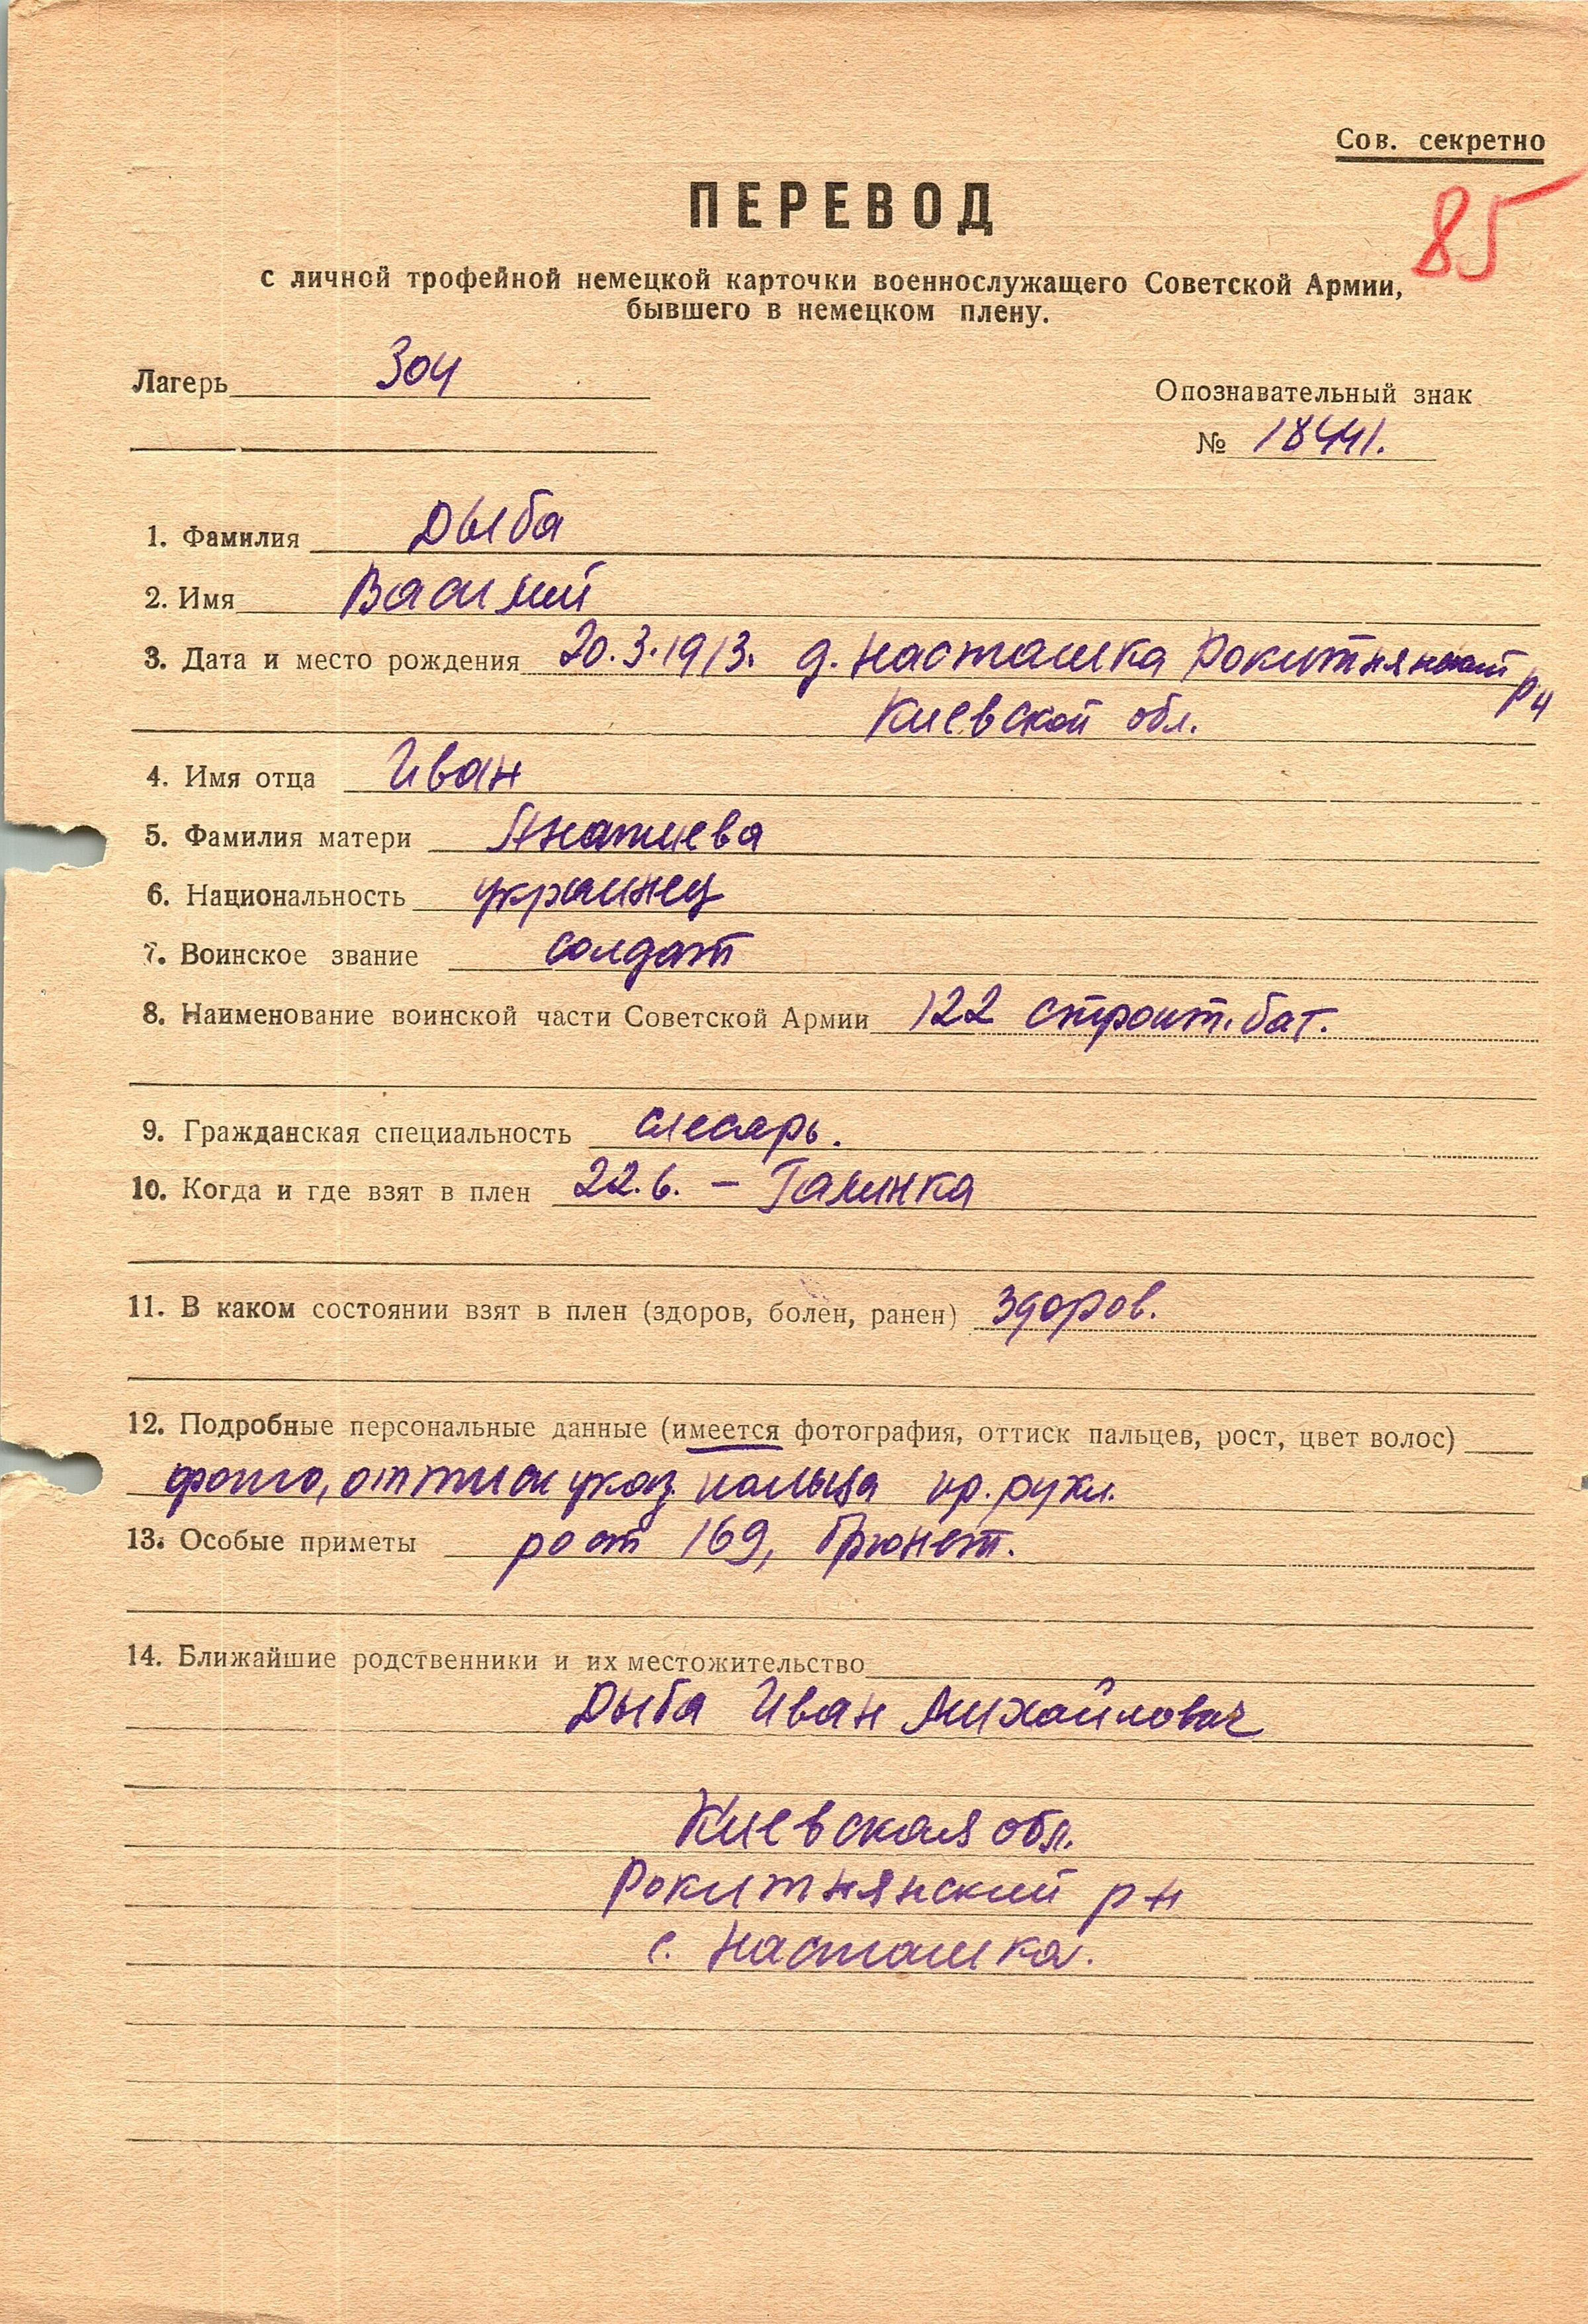 Сов. секретно
ПЕРЕВОД
85
с личной трофейной немецкой карточки военнослужащего Советской Армии,
бывшего в немецком плену.
Лагерь 304
Опознавательный знак
№ 18441.
1. Фамилия Дыба
2. Имя Василий
3. Дата и место рождения 20.3.1913. д. Насташка Рокитнянский р-н
Киевской обл.
4. Имя отца Иван
5. Фамилия матери
6. Национальность украинец
7. Воинское звание солдат
8. Наименование воинской части Советской Армии 122 строит. бат.
9. Гражданская специальность слесарь.
10. Когда и где взят в плен 22.6. – Галинка
11. В каком состоянии взят в плен (здоров, болен, ранен) здоров.
12. Подробные персональные данные (имеется фотография, оттиск пальцев, рост, цвет волос)
фото, оттиск указ. пальца пр. руки.
13. Особые приметы рост 169, брюнет.
14. Ближайшие родственники и их местожительство
Дыба Иван Михайлович
Киевская обл.
Рокитнянский р-н
с. Насташка.